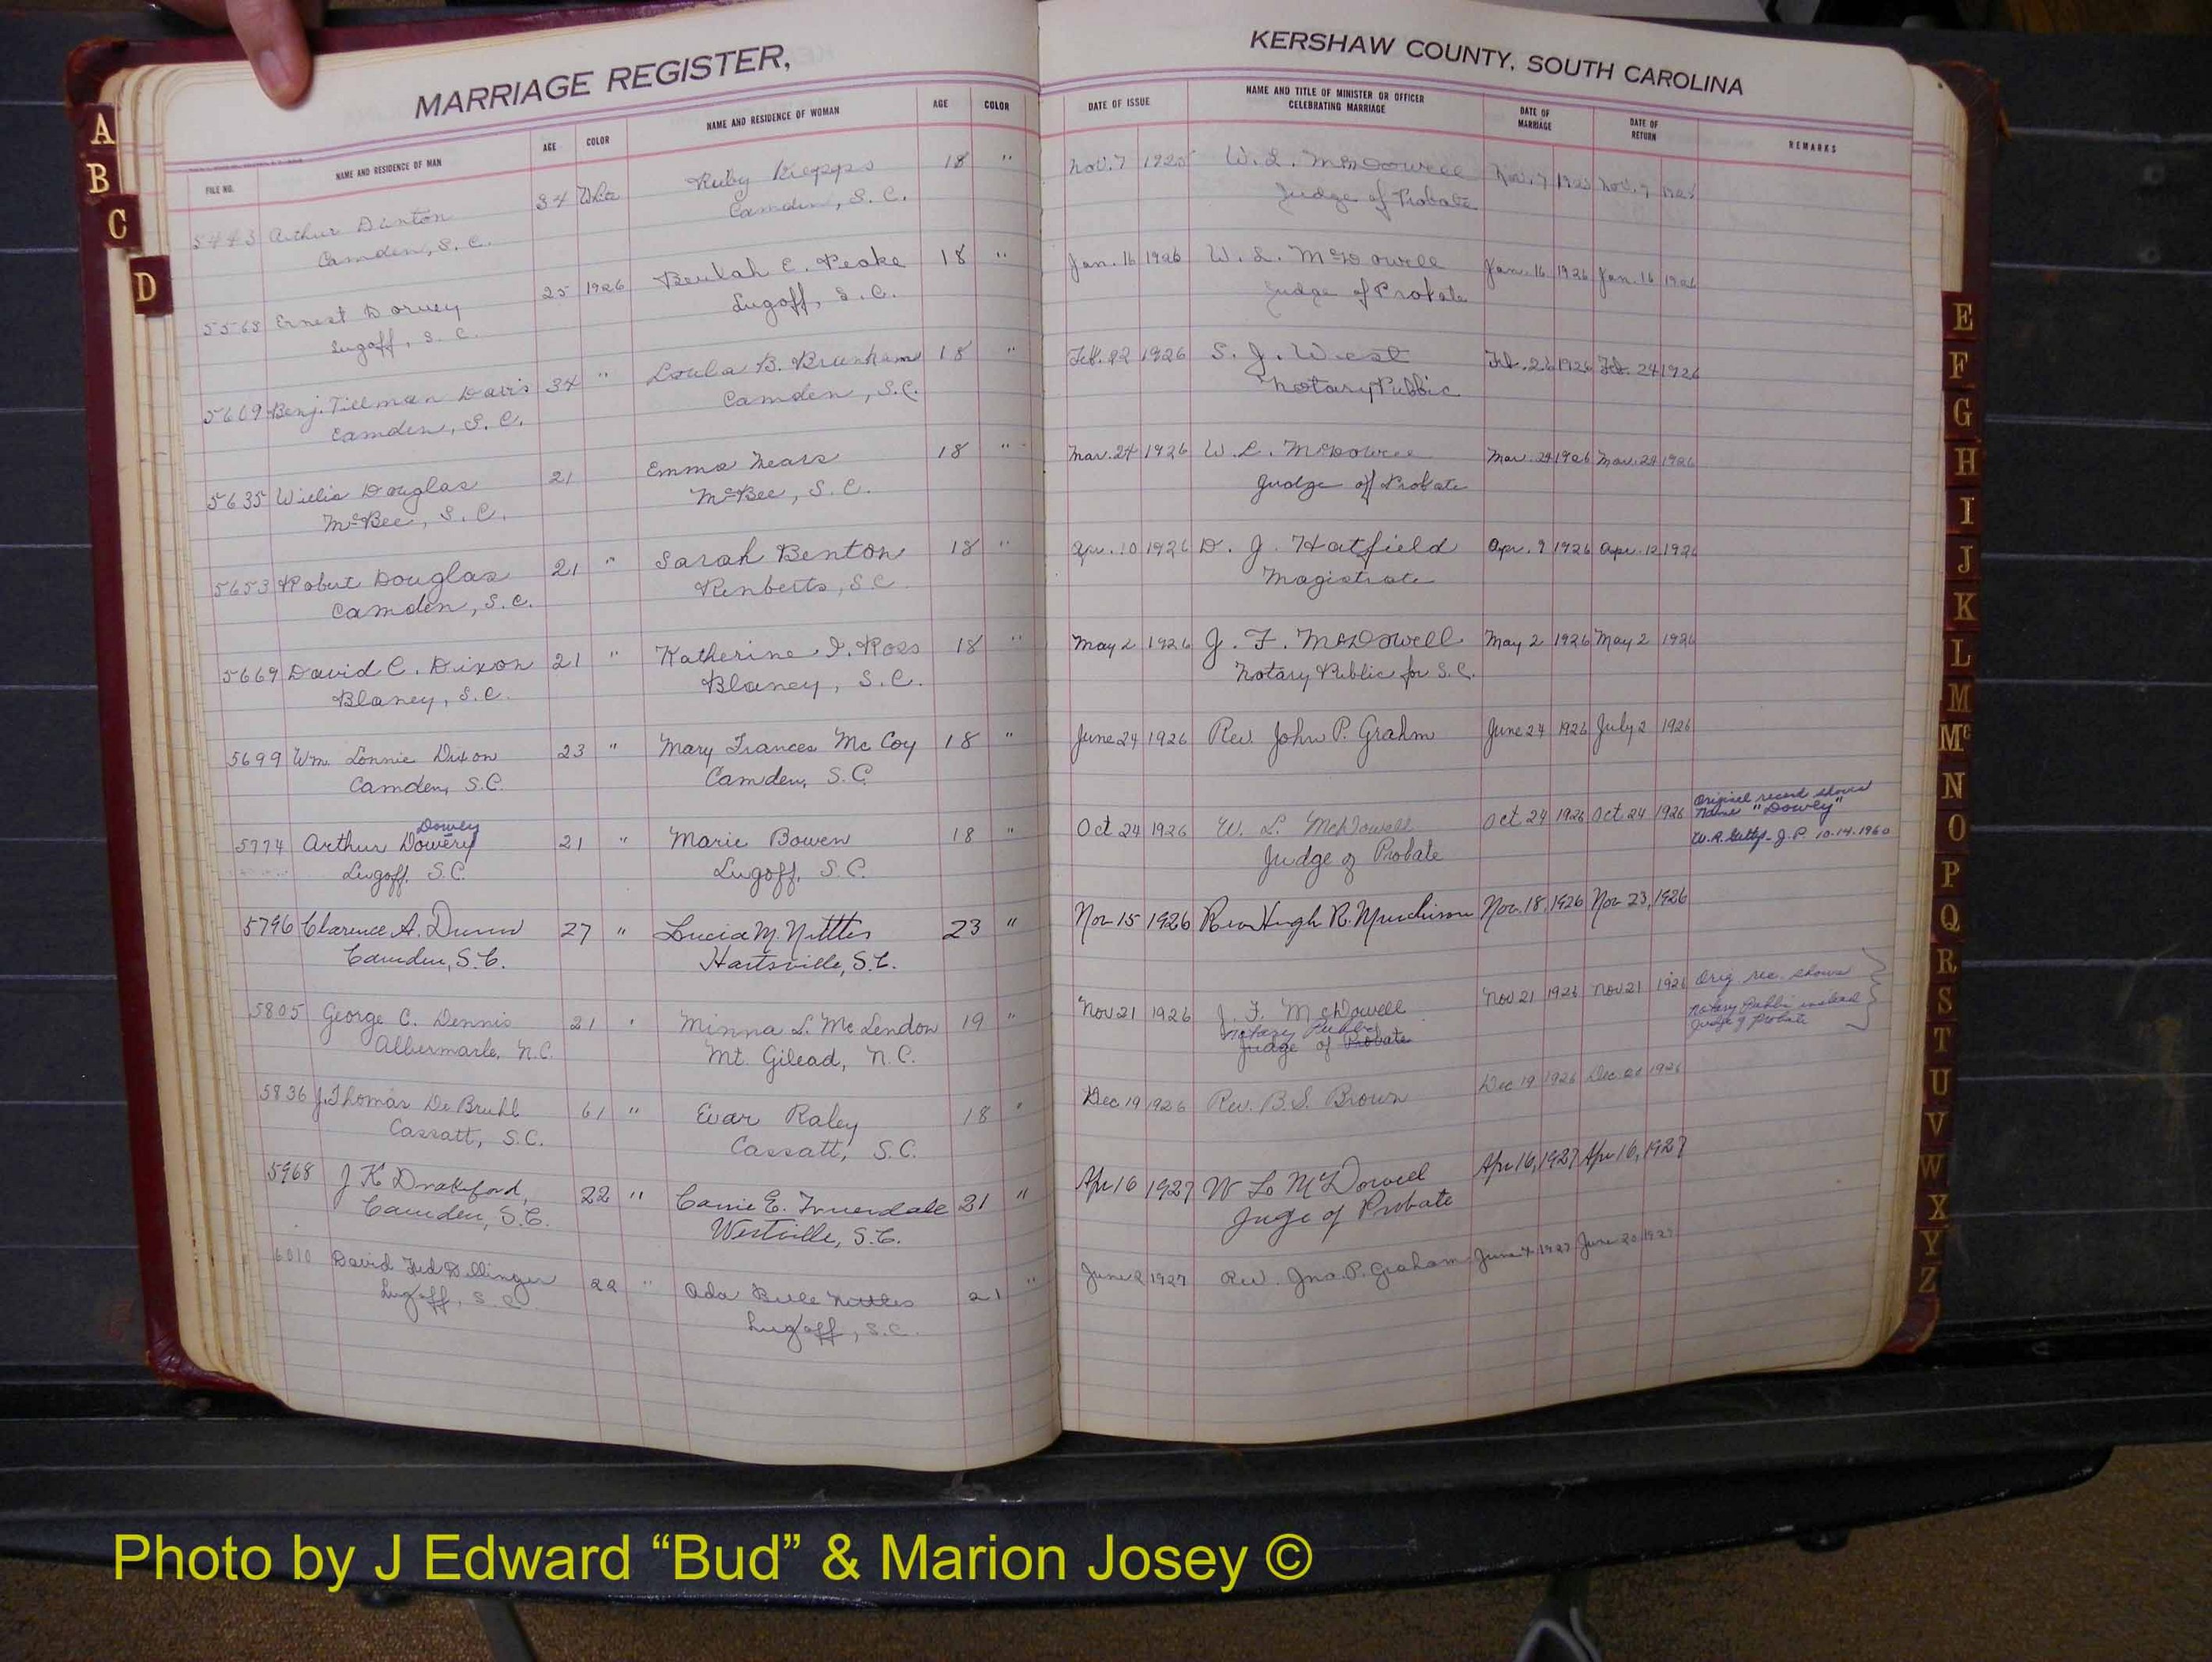 MARRIAGE REGISTER,
FILE NO. NAME AND RESIDENCE OF MAN AGE COLOR NAME AND RESIDENCE OF WOMAN AGE COLOR
5443 Arthur Dinton 34 White Ruby 18 "
Camden, S. C. Camden, S. C.
5568 Ernest Dorvey 25 1926 Beulah E. Peake 18 "
Lugoff, S. C. Lugoff, S. C.
5609 Benj. Tillman Davis 34 " Loula B. Branham 18 "
Camden, S. C. Camden, S.C.
5635 Willie Douglas 21 Emma Mears 18 "
McBee, S. C. McBee, S. C.
5653 Robert Douglas 21 " Sarah Benton 18 "
Camden, S. C. S C
5669 David C. Dixon 21 " Katherine I. Ross 18 "
Blaney, S. C. Blaney, S. C.
5699 Wm. Lonnie Dixon 23 " Mary Frances Mc Coy 18 "
Camden, S.C. Camden, S.C.
Dowey
5774 Arthur Dowery 21 " Marie Bowen 18 "
Lugoff, S.C. Lugoff, S.C.
5796 Clarence A. Dunn 27 " Lucia M. Nettles 23 "
Camden, S.C. Hartsville, S.C.
5805 George C. Dennis 21 " Minna L. Mc Lendon 19 "
Albermarle, N.C. Mt. Gilead, N.C.
5836 J. Thomas De Bruhl 61 " Evar Raley 18 "
Cassatt, S.C. Cassatt, S.C.
5968 J K Drakeford, 22 " Carrie E. Truesdale 21 "
Camden, S.C. Westville, S.C.
6010 David Fred Dellinger 22 " Ada Belle Nettles 21 "
Lugoff, S. C. Lugoff, S.C.
KERSHAW COUNTY, SOUTH CAROLINA
DATE OF ISSUE NAME AND TITLE OF MINISTER OR OFFICER CELEBRATING MARRIAGE DATE OF MARRIAGE DATE OF RETURN REMARKS
Nov. 7 1925 W. L. McDowell Nov. 7 1925 Nov. 7 1925
Judge of Probate
Jan. 16 1926 W. L. McDowell Jan. 16 1926 Jan. 16 1926
Judge of Probate
Feb. 22 1926 S. J. West Feb. 1926 Feb. 24 1926
Notary Public
Mar. 24 1926 W. L. McDowell Mar. 24 1926 Mar. 24 1926
Judge of Probate
Apr. 10 1926 D. J. Hatfield Apr. 9 1926 Apr. 12 1926
Magistrate
May 2 1926 J. F. McDowell May 2 1926 May 2 1926
Notary Public for S.C.
June 24 1926 Rev. John P. Grahm June 24 1926 July 2 1926
Oct 24 1926 W. L. McDowell Oct 24 1926 Oct 24 1926
Judge of Probate
Original record shows
Name "Dowey"
W.R. J.P. 10-14-1960
Nov 15 1926 Rev Hugh R. Murchison Nov. 18, 1926 Nov 23, 1926
Nov 21 1926 J. F. McDowell Nov 21 1926 Nov 21 1926
Notary Public
Judge of Probate
Orig. rec. shows
Notary Public instead
Judge of Probate
Dec 19 1926 Rev. B. S. Brown Dec 19 1926 Dec. 20 1926
Apr 16 1927 W L McDowell Apr 16, 1927 Apr 16, 1927
Juge of Probate
June 2 1927 Rev. Jno. P. Graham June 4 1927 June 20 1927
A
B
C
D
E
F
G
H
I
J
K
L
M
Mc
N
O
P
Q
R
S
T
U
V
W
X
Y
Z
Photo by J Edward “Bud” & Marion Josey ©